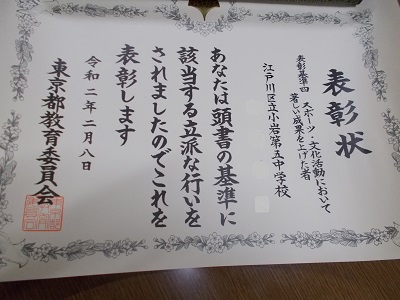 表彰状
表彰基準四 スポーツ・文化活動において
著しい成果を上げた者
江戸川区立小岩第五中学校
あなたは頭書の基準に
該当する立派な行いを
されましたのでこれを
表彰します
令和二年二月八日
東京都教育委員会